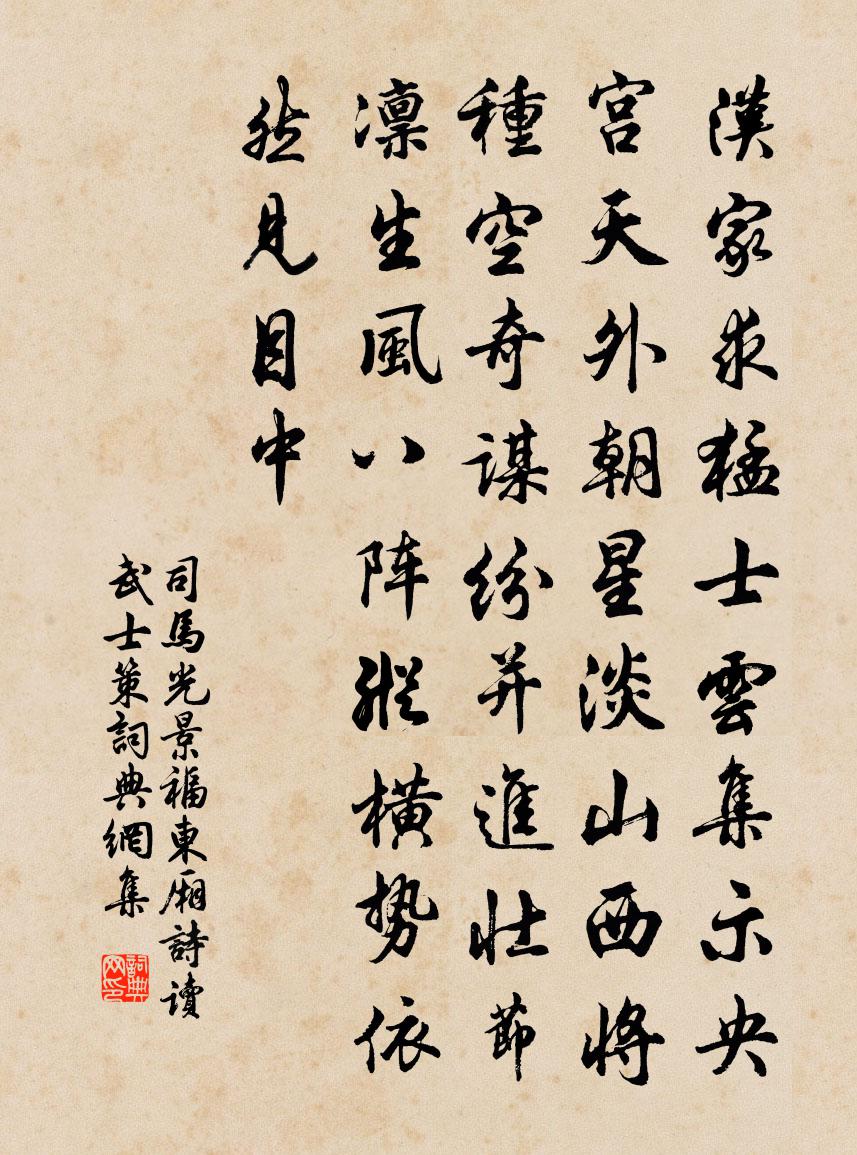 漢家求猛士雲集示央
宫天外朝星淡山西將
種空奇謀紛并進壯節
凛生風八阵縱橫势依
然見目中
司馬光景福東厢詩讀
武士策詞典網集
詞典
网印